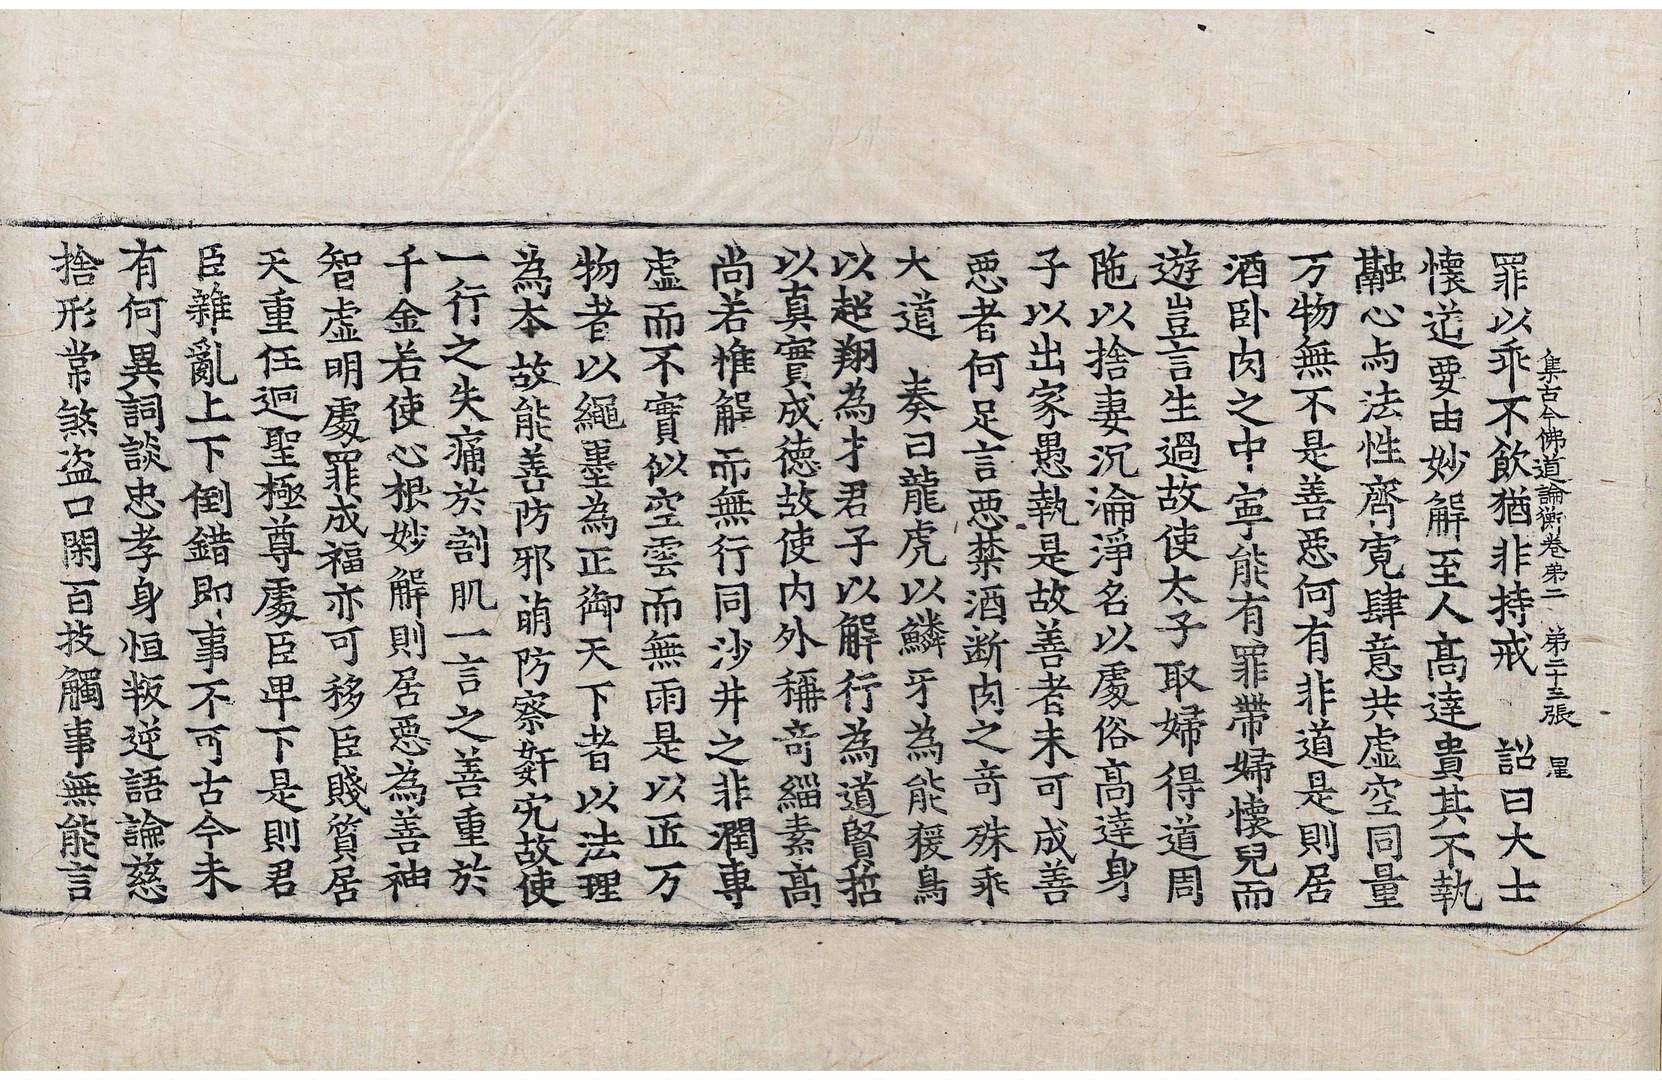 集古今佛道論衡卷第二　第二十五張　星
罪以乖不飲猶非持戒　詔曰大士
懷道要由妙解至人高達貴其不執
融心与法性齊寛肆意共虛空同量
万物無不是善惡何有非道是則居
酒卧肉之中寕能有罪帶婦懷兒而
遊豈言生過故使太子取婦得道周
陁以捨妻沉淪淨名以處俗高達身
子以出家愚執是故善者未可成善
惡者何足言惡禁酒断肉之竒殊乖
大道　奏曰龍虎以鱗牙為能猨鳥
以超翔為才君子以解行為道賢哲
以真實成德故使内外稱竒緇素高
尚若惟解而無行同沙井之非潤專
虛而不實似空雲而無雨是以匠万
物者以繩墨為正御天下者以法理
為本故能善防邪萌防察姧宄故使
一行之失痛於割肌一言之善重於
千金若使心根妙解則居惡為善神
智虛明處罪成福亦可移臣賤質居
天重任迴聖極尊處臣卑下是則君
臣雜亂上下倒錯即事不可古今未
有何異詞談忠孝身恒叛逆語論慈
捨形常煞盗口閑百技觸事無能言